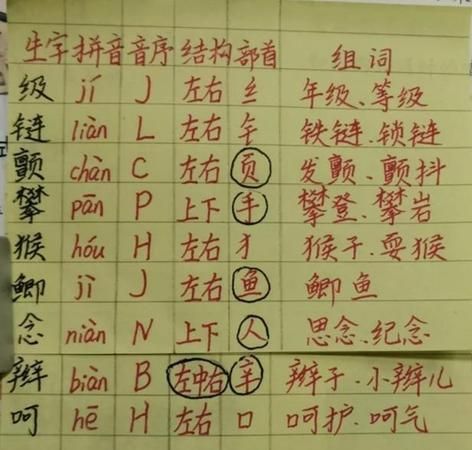 生字 拼音 音序 结构 部首 组词
级 jí J 左右 纟 年级、等级
链 liàn L 左右 钅 铁链、锁链
颤 chàn C 左右 页 发颤、颤抖
攀 pān P 上下 手 攀登、攀岩
猴 hóu H 左右 犭 猴子、耍猴
鲫 jì J 左右 鱼 鲫鱼
念 niàn N 上下 人 思念、纪念
辫 biàn B 左中右 辛 辫子、小辫儿
呵 hē H 左右 口 呵护、呵气